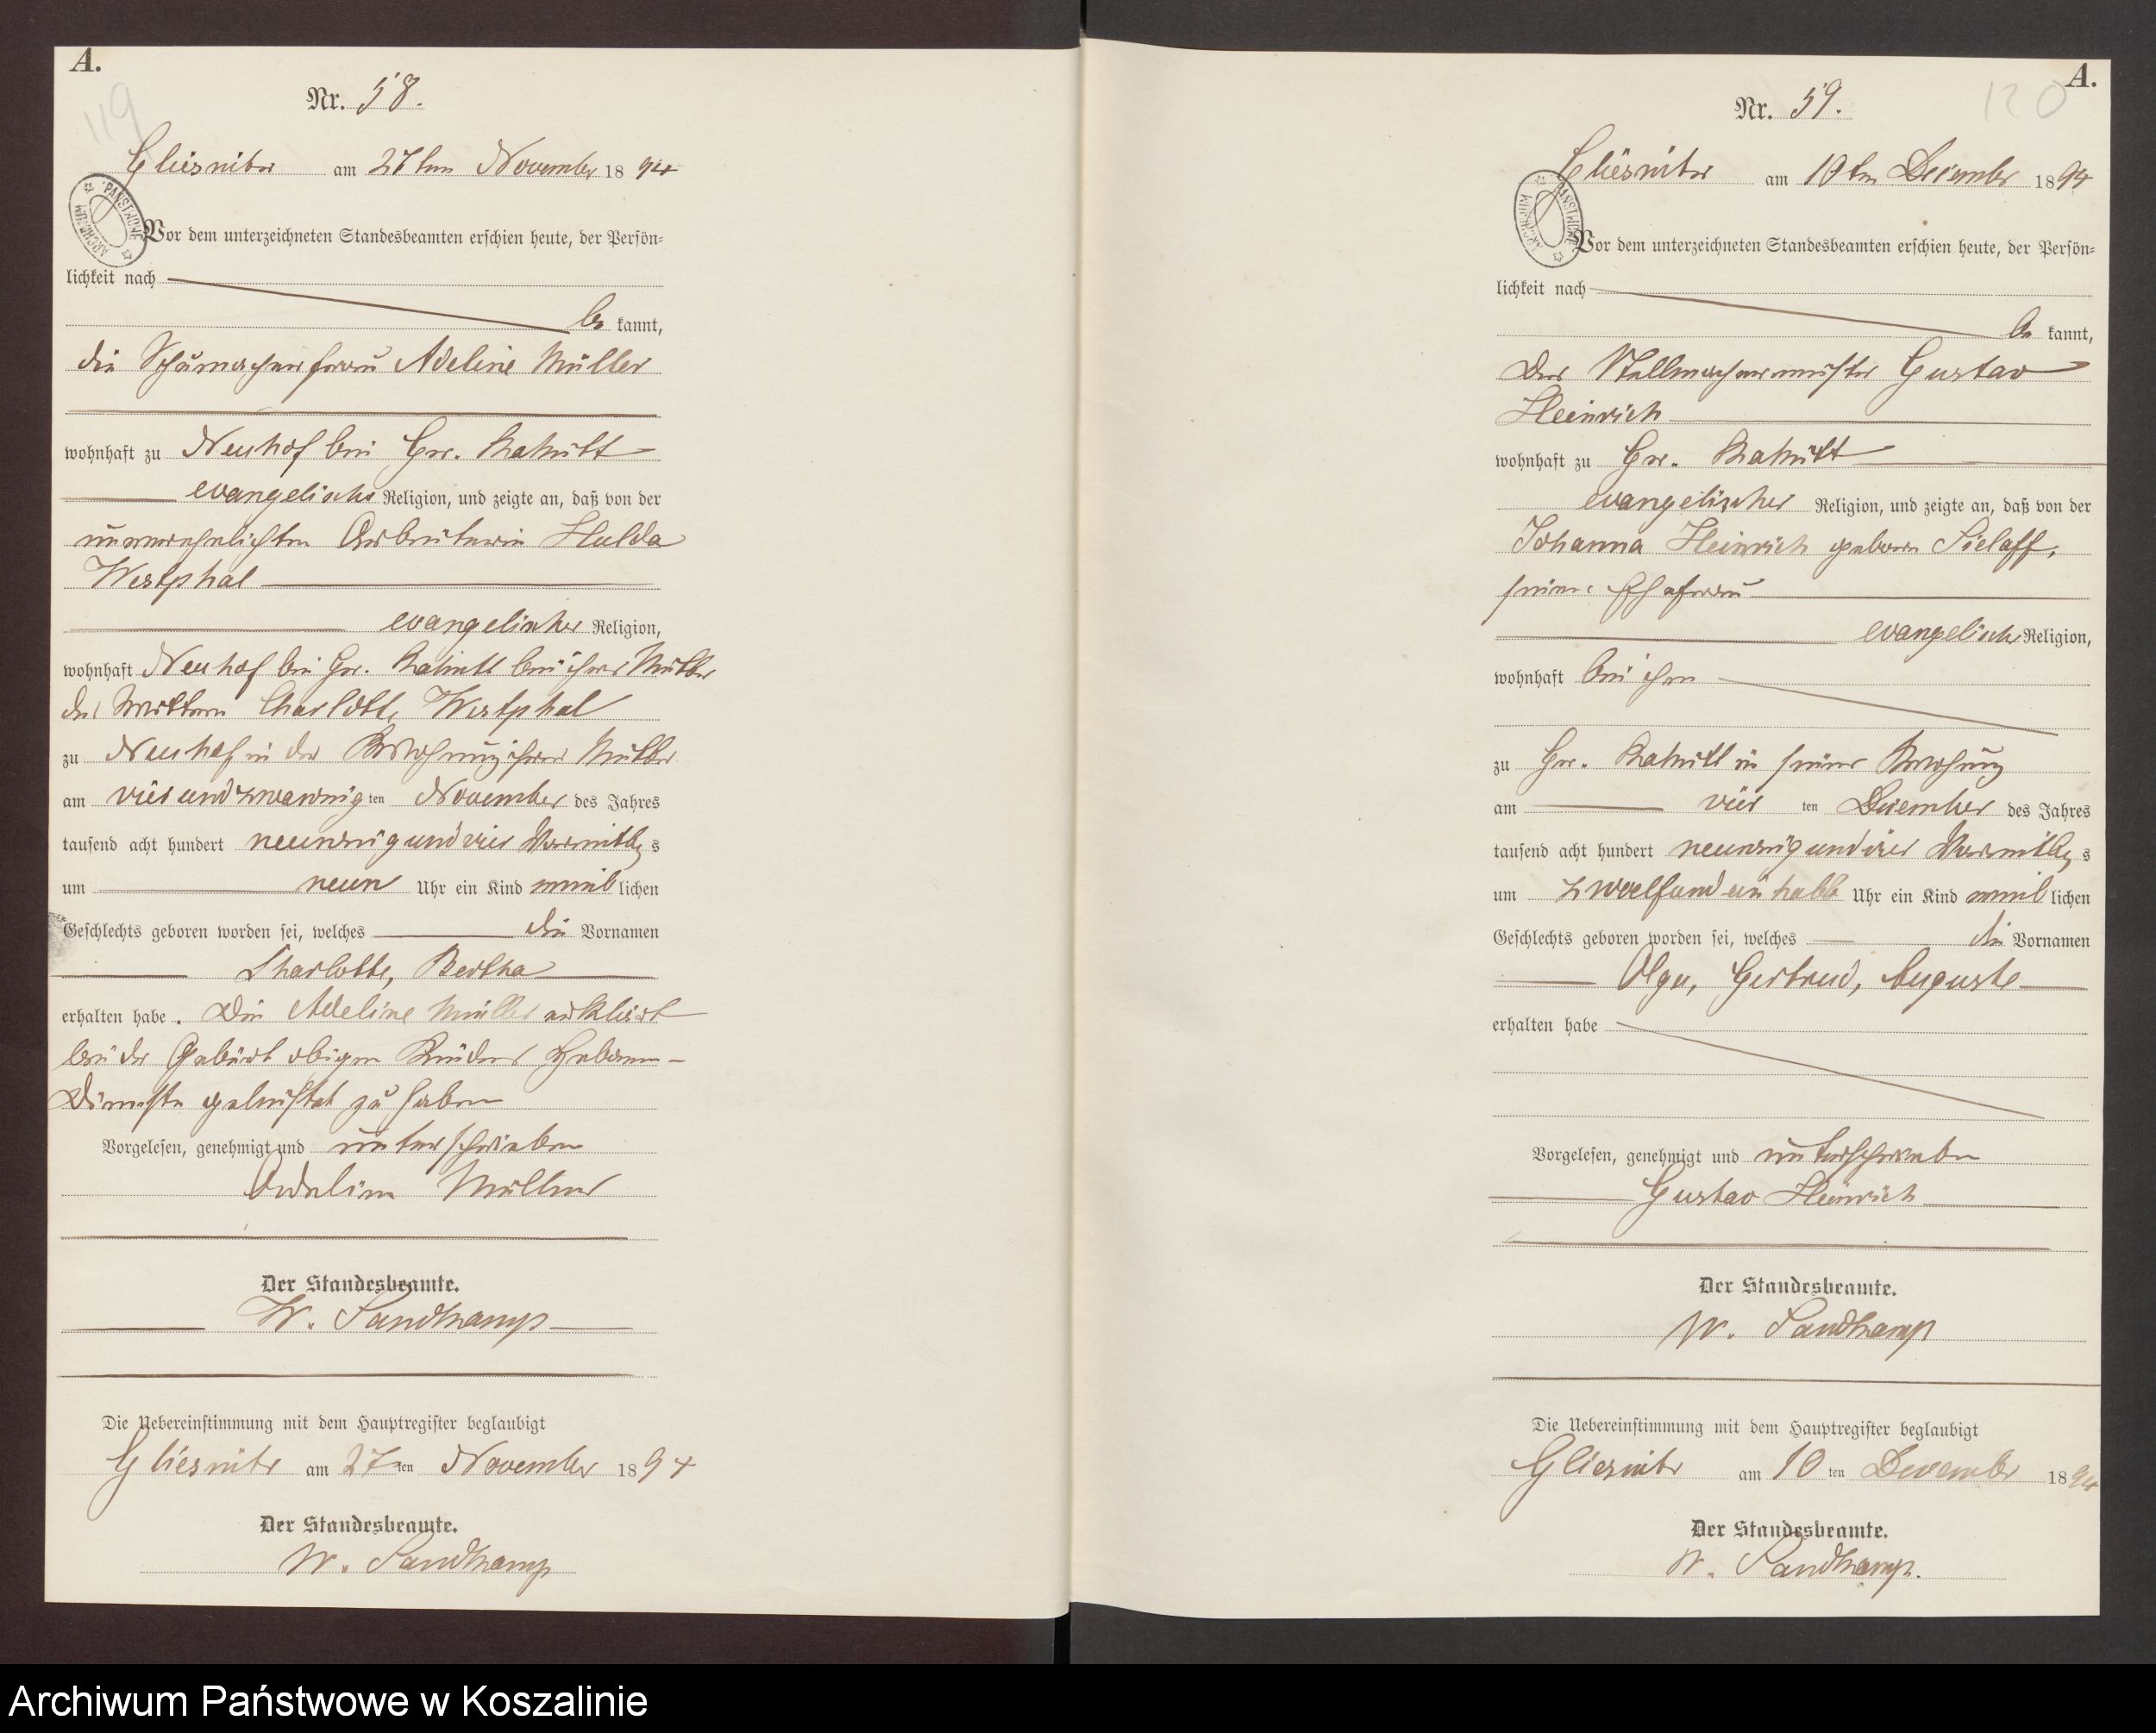 A.
119
Nr. 58.
Gliesnitz am 27ten November 1894
Vor dem unterzeichneten Standesbeamten erschien heute, der Persön-
lichkeit nach
be kannt,
die Schumacherfrau Adeline Müller
wohnhaft zu Neuhof bei Gr. Rakitt
evangelischer Religion, und zeigte an, daß von der
unverehelichten Arbeiterin Hulda
Westphal
evangelischer Religion,
wohnhaft Neuhof bei Gr. Rakitt bei ihrer Mutter
der Charlotte Westphal
zu Neuhof in der Wohnung ihrer Mutter
am vierundzwanzig ten November des Jahres
tausend acht hundert neunzig und vier Vormittags
um neun Uhr ein Kind weiblichen
Geschlechts geboren worden sei, welches die Vornamen
Charlotte, Bertha
erhalten habe. Die Adeline Müller erklärt
bei der Geburt obigen Kindes Hebammen-
Dienste geleistet zu haben
Vorgelesen, genehmigt und unterschrieben
Adeline Müller
Der Standesbeamte.
W. Sandkamp
Die Uebereinstimmung mit dem Hauptregister beglaubigt
Gliesnitz am 27ten November 1894
Der Standesbeamte.
W. Sandkamp
A.
120
Nr. 59.
Gliesnitz am 10ten Dezember 1894
Vor dem unterzeichneten Standesbeamten erschien heute, der Persön-
lichkeit nach
be kannt,
Der Stellmachermeister Gustav
Heinrich
wohnhaft zu Gr. Rakitt
evangelischer Religion, und zeigte an, daß von der
Johanna Heinrich geboren Sielaff,
seiner Ehefrau
evangelischer Religion,
wohnhaft bei ihm
zu Gr. Rakitt in seiner Wohnung
am vier ten Dezember des Jahres
tausend acht hundert neunzig und vier Vormittags
um zwoelf und ein halb Uhr ein Kind weiblichen
Geschlechts geboren worden sei, welches die Vornamen
Olga, Gertrud, Auguste
erhalten habe
Vorgelesen, genehmigt und unterschrieben
Gustav Heinrich
Der Standesbeamte.
W. Sandkamp
Die Uebereinstimmung mit dem Hauptregister beglaubigt
Gliesnitz am 10ten Dezember 1894
Der Standesbeamte.
W. Sandkamp.
Archiwum Państwowe w Koszalinie